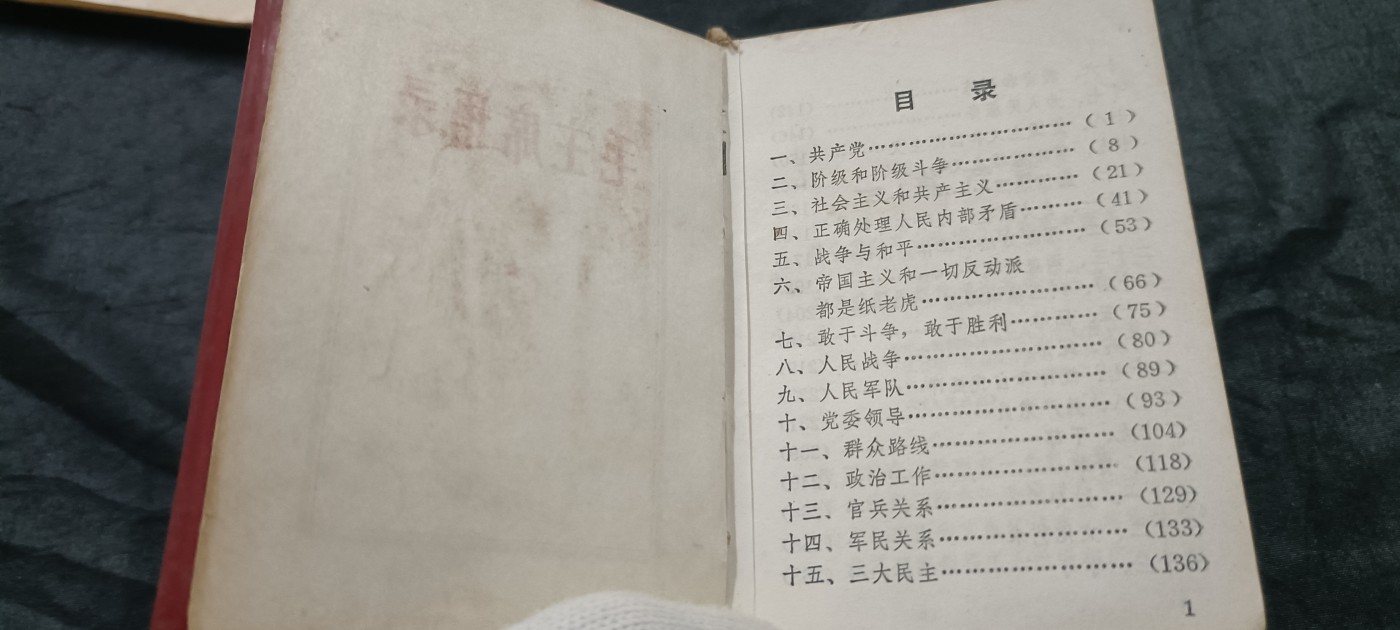 目 录
一、共产党……………………………（1）
二、阶级和阶级斗争…………………（8）
三、社会主义和共产主义…………（21）
四、正确处理人民内部矛盾………（41）
五、战争与和平……………………（53）
六、帝国主义和一切反动派
都是纸老虎……………………（66）
七、敢于斗争，敢于胜利…………（75）
八、人民战争………………………（80）
九、人民军队………………………（89）
十、党委领导………………………（93）
十一、群众路线……………………（104）
十二、政治工作……………………（118）
十三、官兵关系……………………（129）
十四、军民关系……………………（133）
十五、三大民主……………………（136）
1